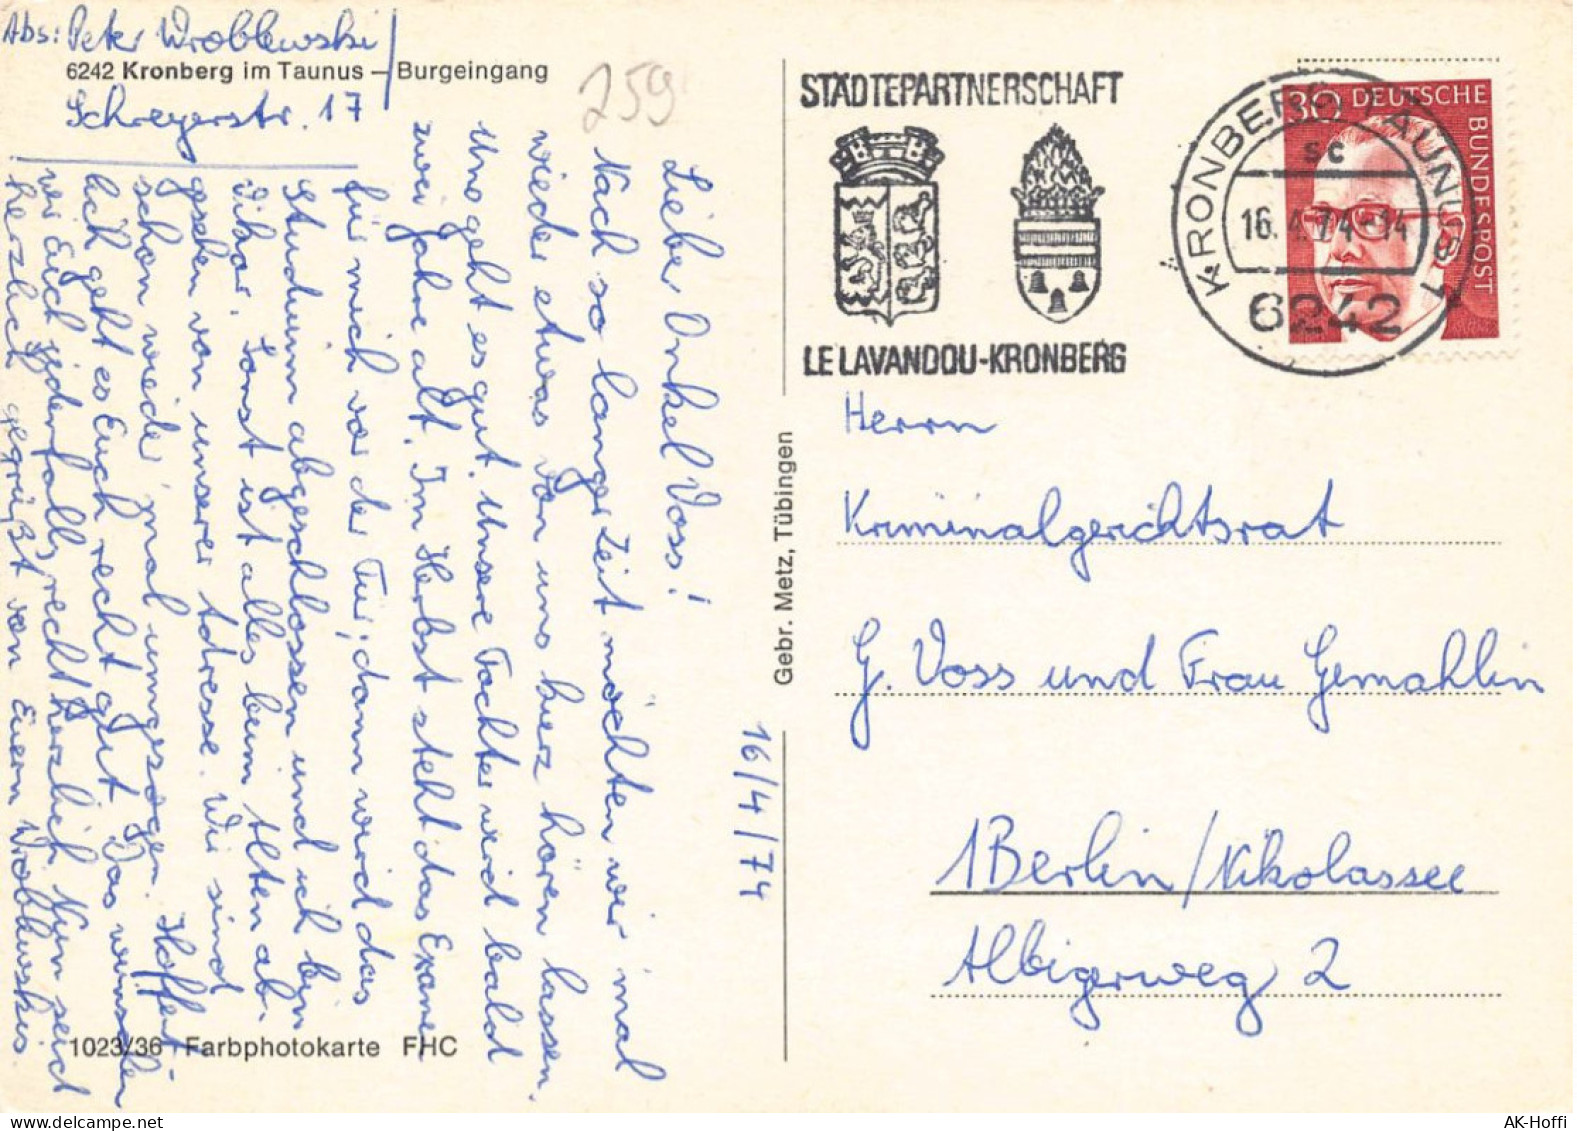 Abs: Peter Wroblewski
6242 Kronberg im Taunus – Burgeingang
Schreyerstr. 17
259
Lieber Onkel Voss!
Nach so langer Zeit möchten wir mal
wieder etwas von uns herz hören lassen.
Uns geht es gut. Unsere Tochter wird bald
zwei Jahre alt. Im Herbst steht das Examen
für mich vor der Tür; dann wird das
Studium abgeschlossen und ich bin
Vikar. Sonst ist alles beim Alten ab-
gesehen von unserer Adresse. Wir sind
schon wieder mal umgezogen. Hoffent-
lich geht es Euch recht gut. Das wünschen
wir Euch jedenfalls recht herzlich. Nun seid
herzlich gegrüßt von Euern Wroblewskis.
1023/36 Farbphotokarte FHC
16/4/74
Gebr. Metz, Tübingen
STÄDTEPARTNERSCHAFT
LE LAVANDOU-KRONBERG
KRONBERG, TAUNUS 1
sc
16.4.74-14
6242
30 DEUTSCHE
BUNDESPOST
Herrn
Kriminalgerichtsrat
G. Voss und Frau Gemahlin
1 Berlin/Nikolassee
Albigerweg 2
AK-Hoffi